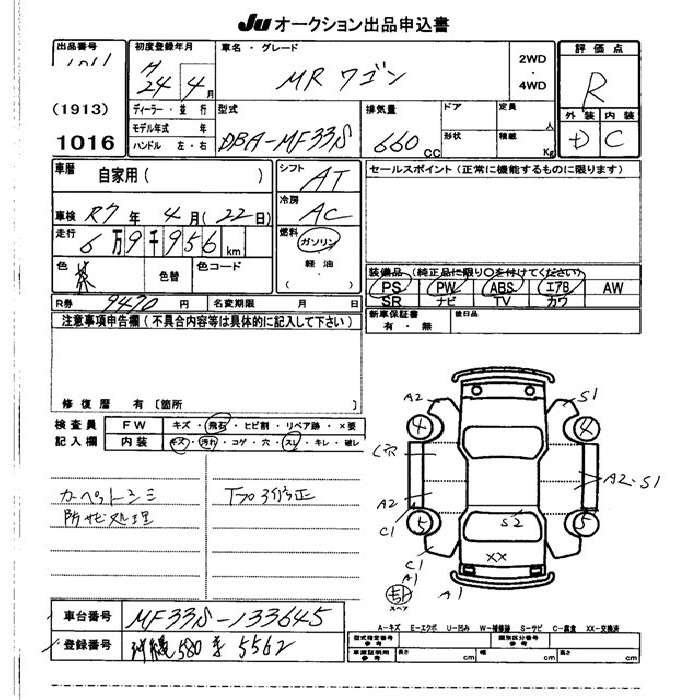 JU オークション出品申込書
出品番号
(1913)
1016
初度登録年月
H 24年 4月
車名・グレード
MRワゴン
2WD
・
4WD
評価点
R
外装 内装
D C
ディーラー・並行
モデル年式 年
ハンドル 左・右
型式
DBA-MF33S
排気量
660 CC
ドア
形状
定員 人
積載 Kg
車歴
自家用( )
車検 R7年4月(22日)
走行
6万9千956 km
色
色替
色コード
シフト
AT
冷房
AC
燃料
ガソリン
軽油
セールスポイント(正常に機能するものに限ります)
装備品(純正品に限り○を付けてください)
PS PW ABS エアB AW
SR ナビ TV カワ
R券 9470円 名変期限 月 日
新車保証書 有・無
後日品
注意事項申告欄(不具合内容等は具体的に記入して下さい)
修復歴 有〔箇所
検査員 FW キズ・飛石・ヒビ割・リペア跡・×要
記入欄 内装 キズ・汚れ・コゲ・穴・スレ・キレ・破レ
カーペットシミ
所サビ処理
A2 S1
4 4
A2
A2・S1
C1
5 5
S2
XX
C1
A1
A1
スペア
車台番号 MF33S-133645
登録番号 沖縄 580 5562
A-キズ E-エクボ U-凹み W-補修跡 S-サビ C-腐食 XX-交換済
型式指定番号 参考
類別区分番号 参考
車庫証明用 参考
長さ cm 幅 cm 高さ cm